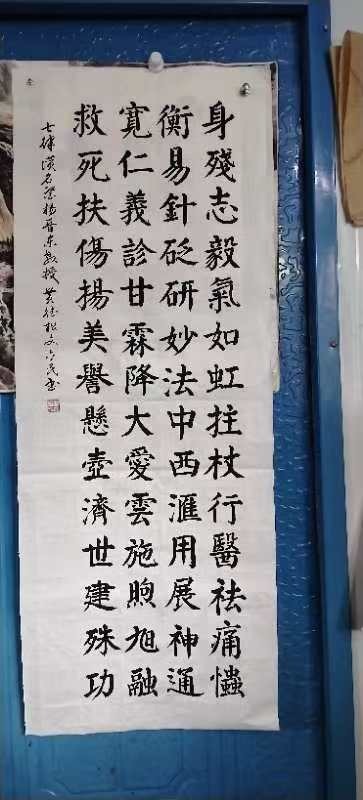 身殘志毅氣如虹拄杖行醫祛痛懺
衡易針砭研妙法中西滙用展神通
寬仁義診甘霖降大愛雲施煦旭融
救死扶傷揚美譽懸壺濟世建殊功
七律漢名醫楊晉東教授